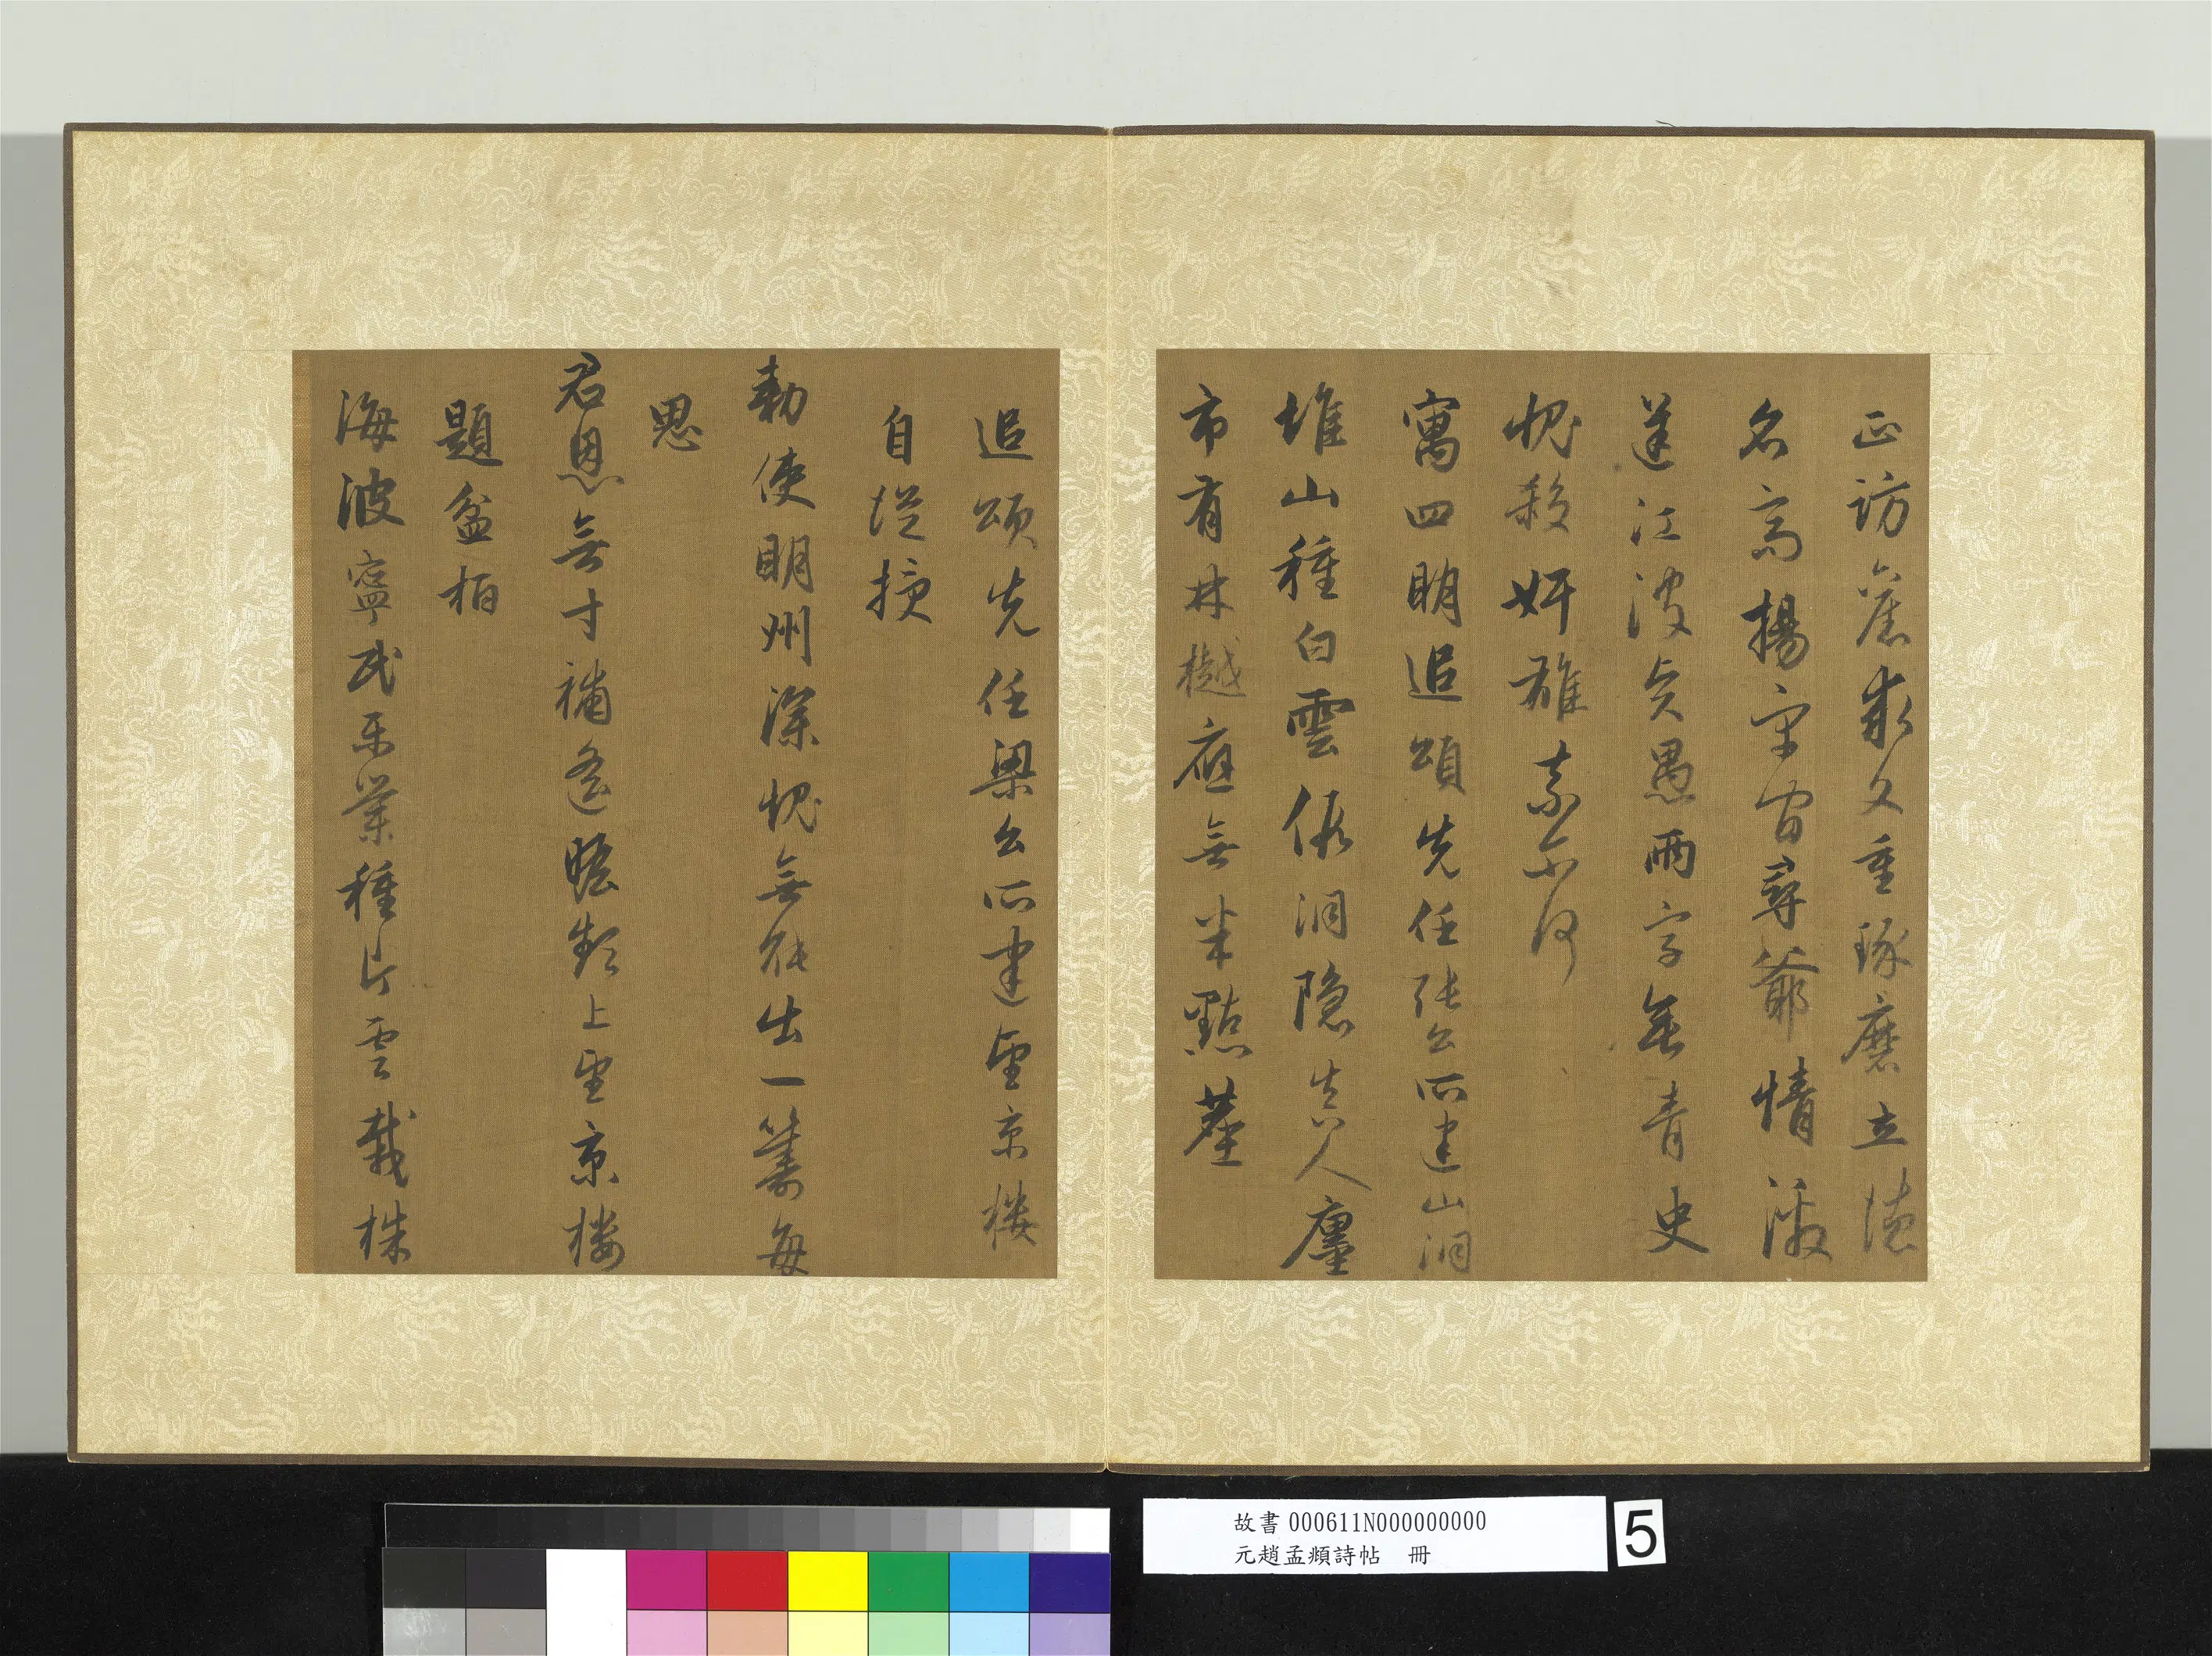 正訪舊求文重琢磨立德
名高揚宇宙尋爺情海
逆江波貞愚兩字無青史
愧殺奸雄素
寓四明追頌先任張公所建山洞
堆山種白雲依洞隱真人廛
市有林樾應無半點塵
追頌先任梁公所建望京樓
自從授
勅使明州深愧無能出一籌每
思
君恩無寸補遙瞻類上望京樓
題盆栢
海波寧民樂業種片雲栽株
故書000611N000000000
元趙孟頫詩帖 冊
5